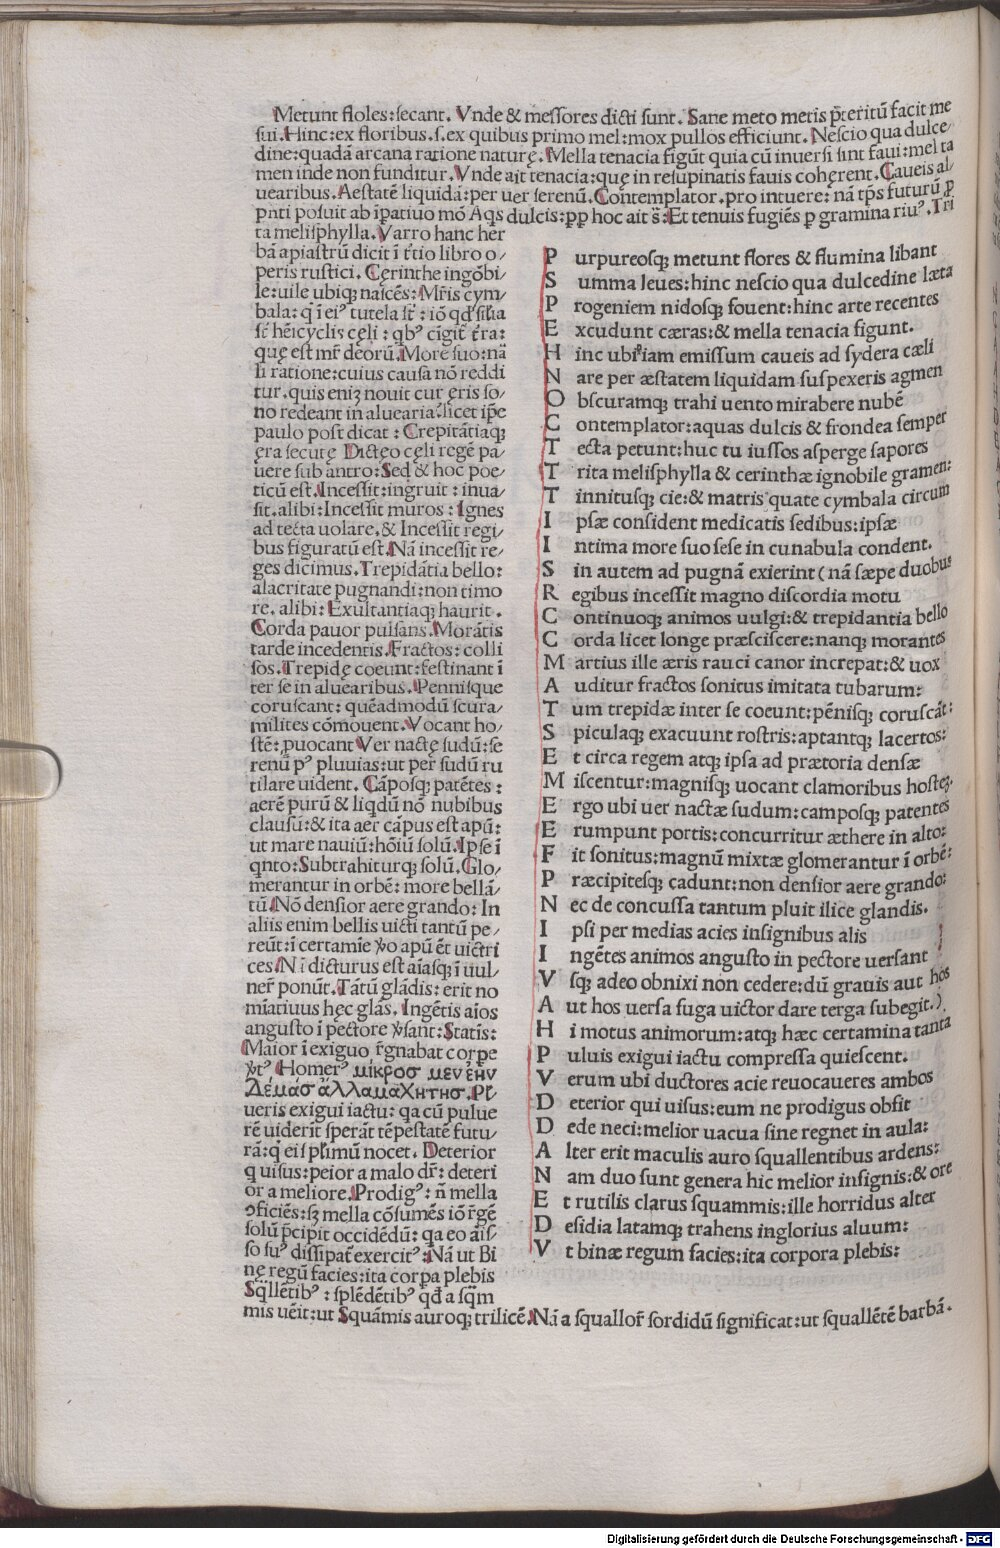 Metunt floles:secant. Vnde & messores dicti sunt. Sane meto metis p̄teritū facit me
sui. Hinc:ex floribus.s.ex quibus primo mel:mox pullos efficiunt. Nescio qua dulce/
dine:quadā arcana ratione naturę. Mella tenacia figūt quia cū inuersi sint faui:mel ta
men inde non funditur. Vnde ait tenacia:quę in resupinatis fauis cohęrent. Caueis al/
uearibus. Aestatē liquidā:per uer serenū. Contemplator.pro intuere: nā tp̄s futurū ꝓ
p̄nti posuit ab īpatiuo mō Aq̄s dulcis:ꝓp̄ hoc ait s̄:Et tenuis fugiēs ꝑ gramina riuꝰ.Tri
ta melisphylla. Varro hanc her
bā apiastrū dicit ī t̄tio libro o/
peris rustici. Cęrinthe ingōbi/
le:uile ubiqꝫ nascēs: Mr̄is cym/
bala: q̄ ī eiꝰ tutela st̄ : iō qd̄ silīa
st̄ hēicyclis cęli : qbꝰ cīgit̄ t̄ra:
quę est mr̄ deorū. More suo:nā
si ratione:cuius causā nō reddi
tur.quis eniꝫ nouit cur ęris so/
no redeant in aluearia?licet ip̄e
paulo post dicat : Crepitātiaqꝫ
ęra secutę Dictęo cęli regē pa/
uere sub antro:Sed & hoc poe/
ticū est. Incessit:ingruit : inua/
sit.alibi:Incessit muros : Ignes
ad tecta uolare. & Incessit regi/
bus figuratū est. Nā incessit re/
ges dicimus. Trepidātia bello:
alacritate pugnandi:non timo
re. alibi: Exultantiaqꝫ haurit .
Corda pauor pulsans. Morātis
tarde incedentis. Fractos: colli
sos. Trepidę coeunt:festinant ī
ter se in aluearibus. Pennisque
coruscant: quēadmodū scura/
milites cōmouent. Vocant ho/
stē: ꝓuocant Ver nactę sudū:se
renū pꝰ pluuias:ut per sudū ru
tilare uident. Cāposqꝫ patētes :
aerē purū & liqdū nō nubibus
clausū:& ita aer cāpus est apū:
ut mare nauiū:hōiū solū. Ipse ī
qnto:Subtrahiturqꝫ solū. Glo/
merantur in orbē: more bellā/
tū. Nō densior aere grando: In
aliis enim bellis uicti tantū pe/
reūt:ī certamīe ꝟo apū ēt uictri
ces. Nī dicturus est aīasqꝫ ī uul/
ner̄ ponūt. Tātū glādis: erit no
mīatiuus hęc glās. Ingētis aīos
angusto ī pectore ꝟsant: Statīs:
Maior ī exiguo r̄gnabat corpe
ꝟtꝰ Homerꝰ μίκροσ μεν ἔην
Δέμασ ἀλλαμαχητησ. Pl̄
ueris exigui iactu: qa cū pulue
rē uiderīt sperāt tēpestatē futu/
rā:q̄ eis pl̄imū nocet. Deterior
q uisus:peior a malo dr̄: deteri
or a meliore. Prodigꝰ: n̄ mella
ꝯficiēs:sꝫ mella cōsumēs iō r̄gē
solū p̄cipit occidēdū: qa eo āis/
so suꝰ dissipat̄ exercitꝰ: Nā ut Bi
nę regū facies:ita corpa plebis
Sq̄llētibꝰ : splēdētibꝰ qđ a sq̄m
mis uēit:ut Squāmis auroqꝫ trilicē. Nā a squallor̄ sordidū significat:ut squallētē barbā.
P urpureosqꝫ metunt flores & flumina libant
S umma leues:hinc nescio qua dulcedine læta
P rogeniem nidosqꝫ fouent:hinc arte recentes
E xcudunt cæras:& mella tenacia figunt.
H inc ubi iam emissum caueis ad sydera cæli
N are per æstatem liquidam suspexeris agmen
O bscuramqꝫ trahi uento mirabere nubē
C ontemplator:aquas dulcis & frondea semper
T ecta petunt:huc tu iussos asperge sapores
T rita melisphylla & cerinthæ ignobile gramen:
T innitusqꝫ cie:& matris quate cymbala circum
I psæ consident medicatis sedibus:ipsæ
I ntima more suo sese in cunabula condent.
S in autem ad pugnā exierint (nā sæpe duobus
R egibus incessit magno discordia motu
C ontinuoqꝫ animos uulgi:& trepidantia bello
C orda licet longe præsciscere:nanqꝫ morantes
M artius ille æris rauci canor increpat:& uox
A uditur fractos sonitus imitata tubarum:
T um trepidæ inter se coeunt:pēnisqꝫ coruscāt:
S piculaqꝫ exacuunt rostris:aptantqꝫ lacertos:
E t circa regem atqꝫ ipsa ad prætoria densæ
M iscentur:magnisqꝫ uocant clamoribus hosteꝫ.
E rgo ubi uer nactæ sudum:camposqꝫ patentes
E rumpunt portis:concurritur æthere in alto:
F it sonitus:magnū mixtæ glomerantur ī orbē:
P ræcipitesqꝫ cadunt:non densior aere grando:
N ec de concussa tantum pluit ilice glandis.
I psi per medias acies insignibus alis
I ngētes animos angusto in pectore uersant
V sqꝫ adeo obnixi non cedere:dū grauis aut hos
A ut hos uersa fuga uictor dare terga subegit.)
H i motus animorum:atqꝫ hæc certamina tanta
P uluis exigui iactu compressa quiescent.
V erum ubi ductores acie reuocaueres ambos
D eterior qui uisus:eum ne prodigus obsit
D ede neci:melior uacua sine regnet in aula:
A lter erit maculis auro squallentibus ardens:
N am duo sunt genera hic melior insignis:& ore
E t rutilis clarus squammis:ille horridus alter
D esidia latamqꝫ trahens inglorius aluum:
V t binæ regum facies:ita corpora plebis:
Digitalisierung gefördert durch die Deutsche Forschungsgemeinschaft - DFG